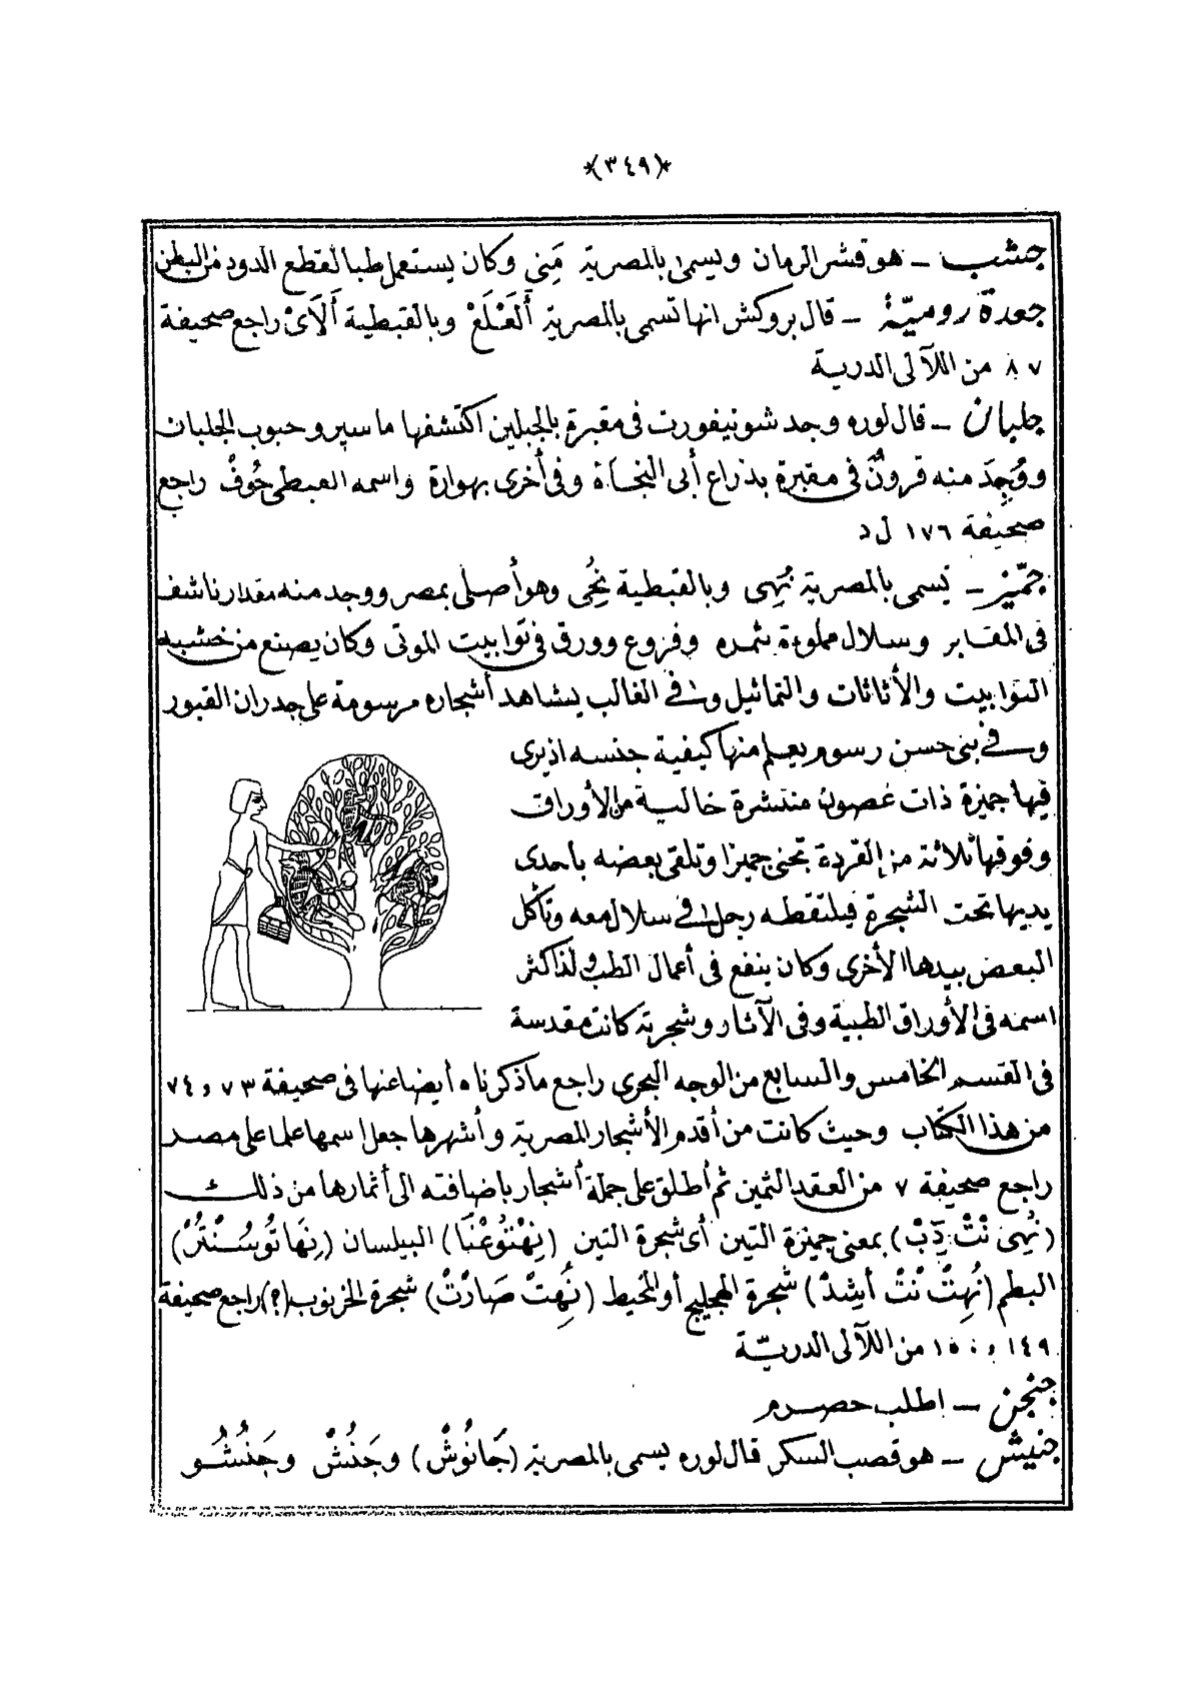 *(٣٤٩)*
جشب ـ هو قشر الرمان ويسمى بالمصرية مَنِي وكان يستعمل طبا لقطع الدود من البطن
جعدة رومية ـ قال بروكش انها تسمى بالمصرية أَلْعَلْعْ وبالقبطية أَلَائْ راجع صحيفة
٨٧ من اللآلى الدرية
جلبان ـ قال لوره وجد شونيفورت فى مقبرة بالجبلين اكتشفها ماسپرو حبوب الجلبان
ووُجِدَ منه قرونٌ فى مقبرة بذراع أبى النجاة وفى أخرى بهوارة واسمه القبطى حُوفْ راجع
صحيفة ١٧٦ ل د
جمّيز ـ تسمى بالمصرية نُهِى وبالقبطية نُحِى وهو أصلى بمصر ووجد منه مقدار ناشف
فى المقابر وسلال مملوءة بثمره وفروع وورق فى توابيت الموتى وكان يصنع من خشبه
التوابيت والأثاثات والتماثيل وفى الغالب يشاهد أشجاره مرسومة على جدران القبور
وفى بنى حسن رسوم يعلم منها كيفية جنسه اذ يرى
فيها جميزة ذات غصون منتشرة خالية من الأوراق
وفوقها ثلاثة من القردة تجنى جميزا وتلقى بعضه بأحدى
يديها تحت الشجرة فيلتقطه رجل فى سلال معه وتأكل
البعض بيدها الأخرى وكان ينفع فى أعمال الطب ولذا كثر
اسمه فى الأوراق الطبية وفى الآثار وشجرته كانت مقدسة
فى القسم الخامس والسابع من الوجه البحرى راجع ماذكرناه أيضا عنها فى صحيفة ٧٣ و٧٤
من هذا الكتاب وحيث كانت من أقدم الأشجار المصرية وأشهرها جعل اسمها علما على مصر
راجع صحيفة ٧ من العقد الثمين ثم أطلق على جملة أشجار باضافته الى أثمارها من ذلك
(نُهِى نْتْ دَبْ) بمعنى جميزة التين أى شجرة التين (نِهْتُوعْنَا) البيلسان (نِهَاتُوسُنْتُرْ)
البطم (نُهِتْ نْتْ أَشِدْ) شجرة الهجليج أو المخيط (نُهِتْ صَارْتْ) شجرة الخرنوب (؟) راجع صحيفة
١٤٩ و١٥٠ من اللآلى الدريّة
جنجن ـ اطلب حصرم
جنيش ـ هو قصب السكر قال لوره يسمى بالمصرية (جَانُوشْ) وجَنُشْ وجَنْشُو